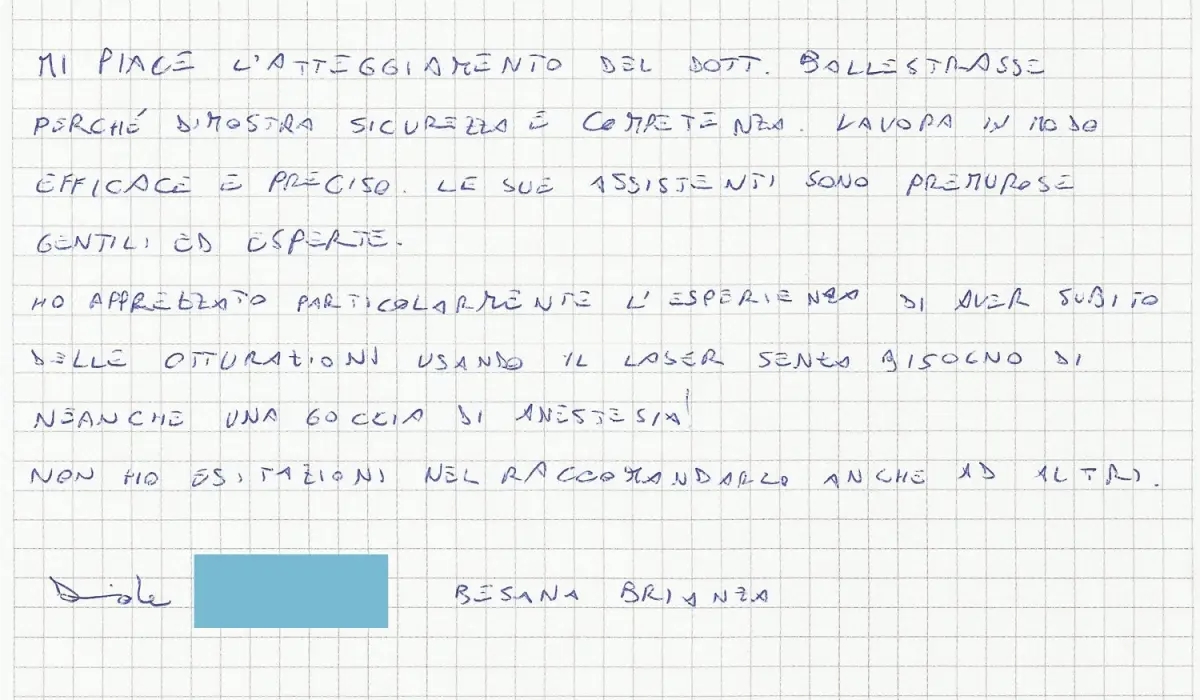 MI PIACE L'ATTEGGIAMENTO DEL DOTT. BALLESTRASSE
PERCHÉ DIMOSTRA SICUREZZA E COMPETENZA. LAVORA IN MODO
EFFICACE E PRECISO. LE SUE ASSISTENTI SONO PREMUROSE
GENTILI ED ESPERTE.
HO APPREZZATO PARTICOLARMENTE L'ESPERIENZA DI AVER SUBITO
DELLE OTTURAZIONI USANDO IL LASER SENZA BISOGNO DI
NEANCHE UNA GOCCIA DI ANESTESIA!
NON HO ESITAZIONI NEL RACCOMANDARLO ANCHE AD ALTRI.
BESANA BRIANZA